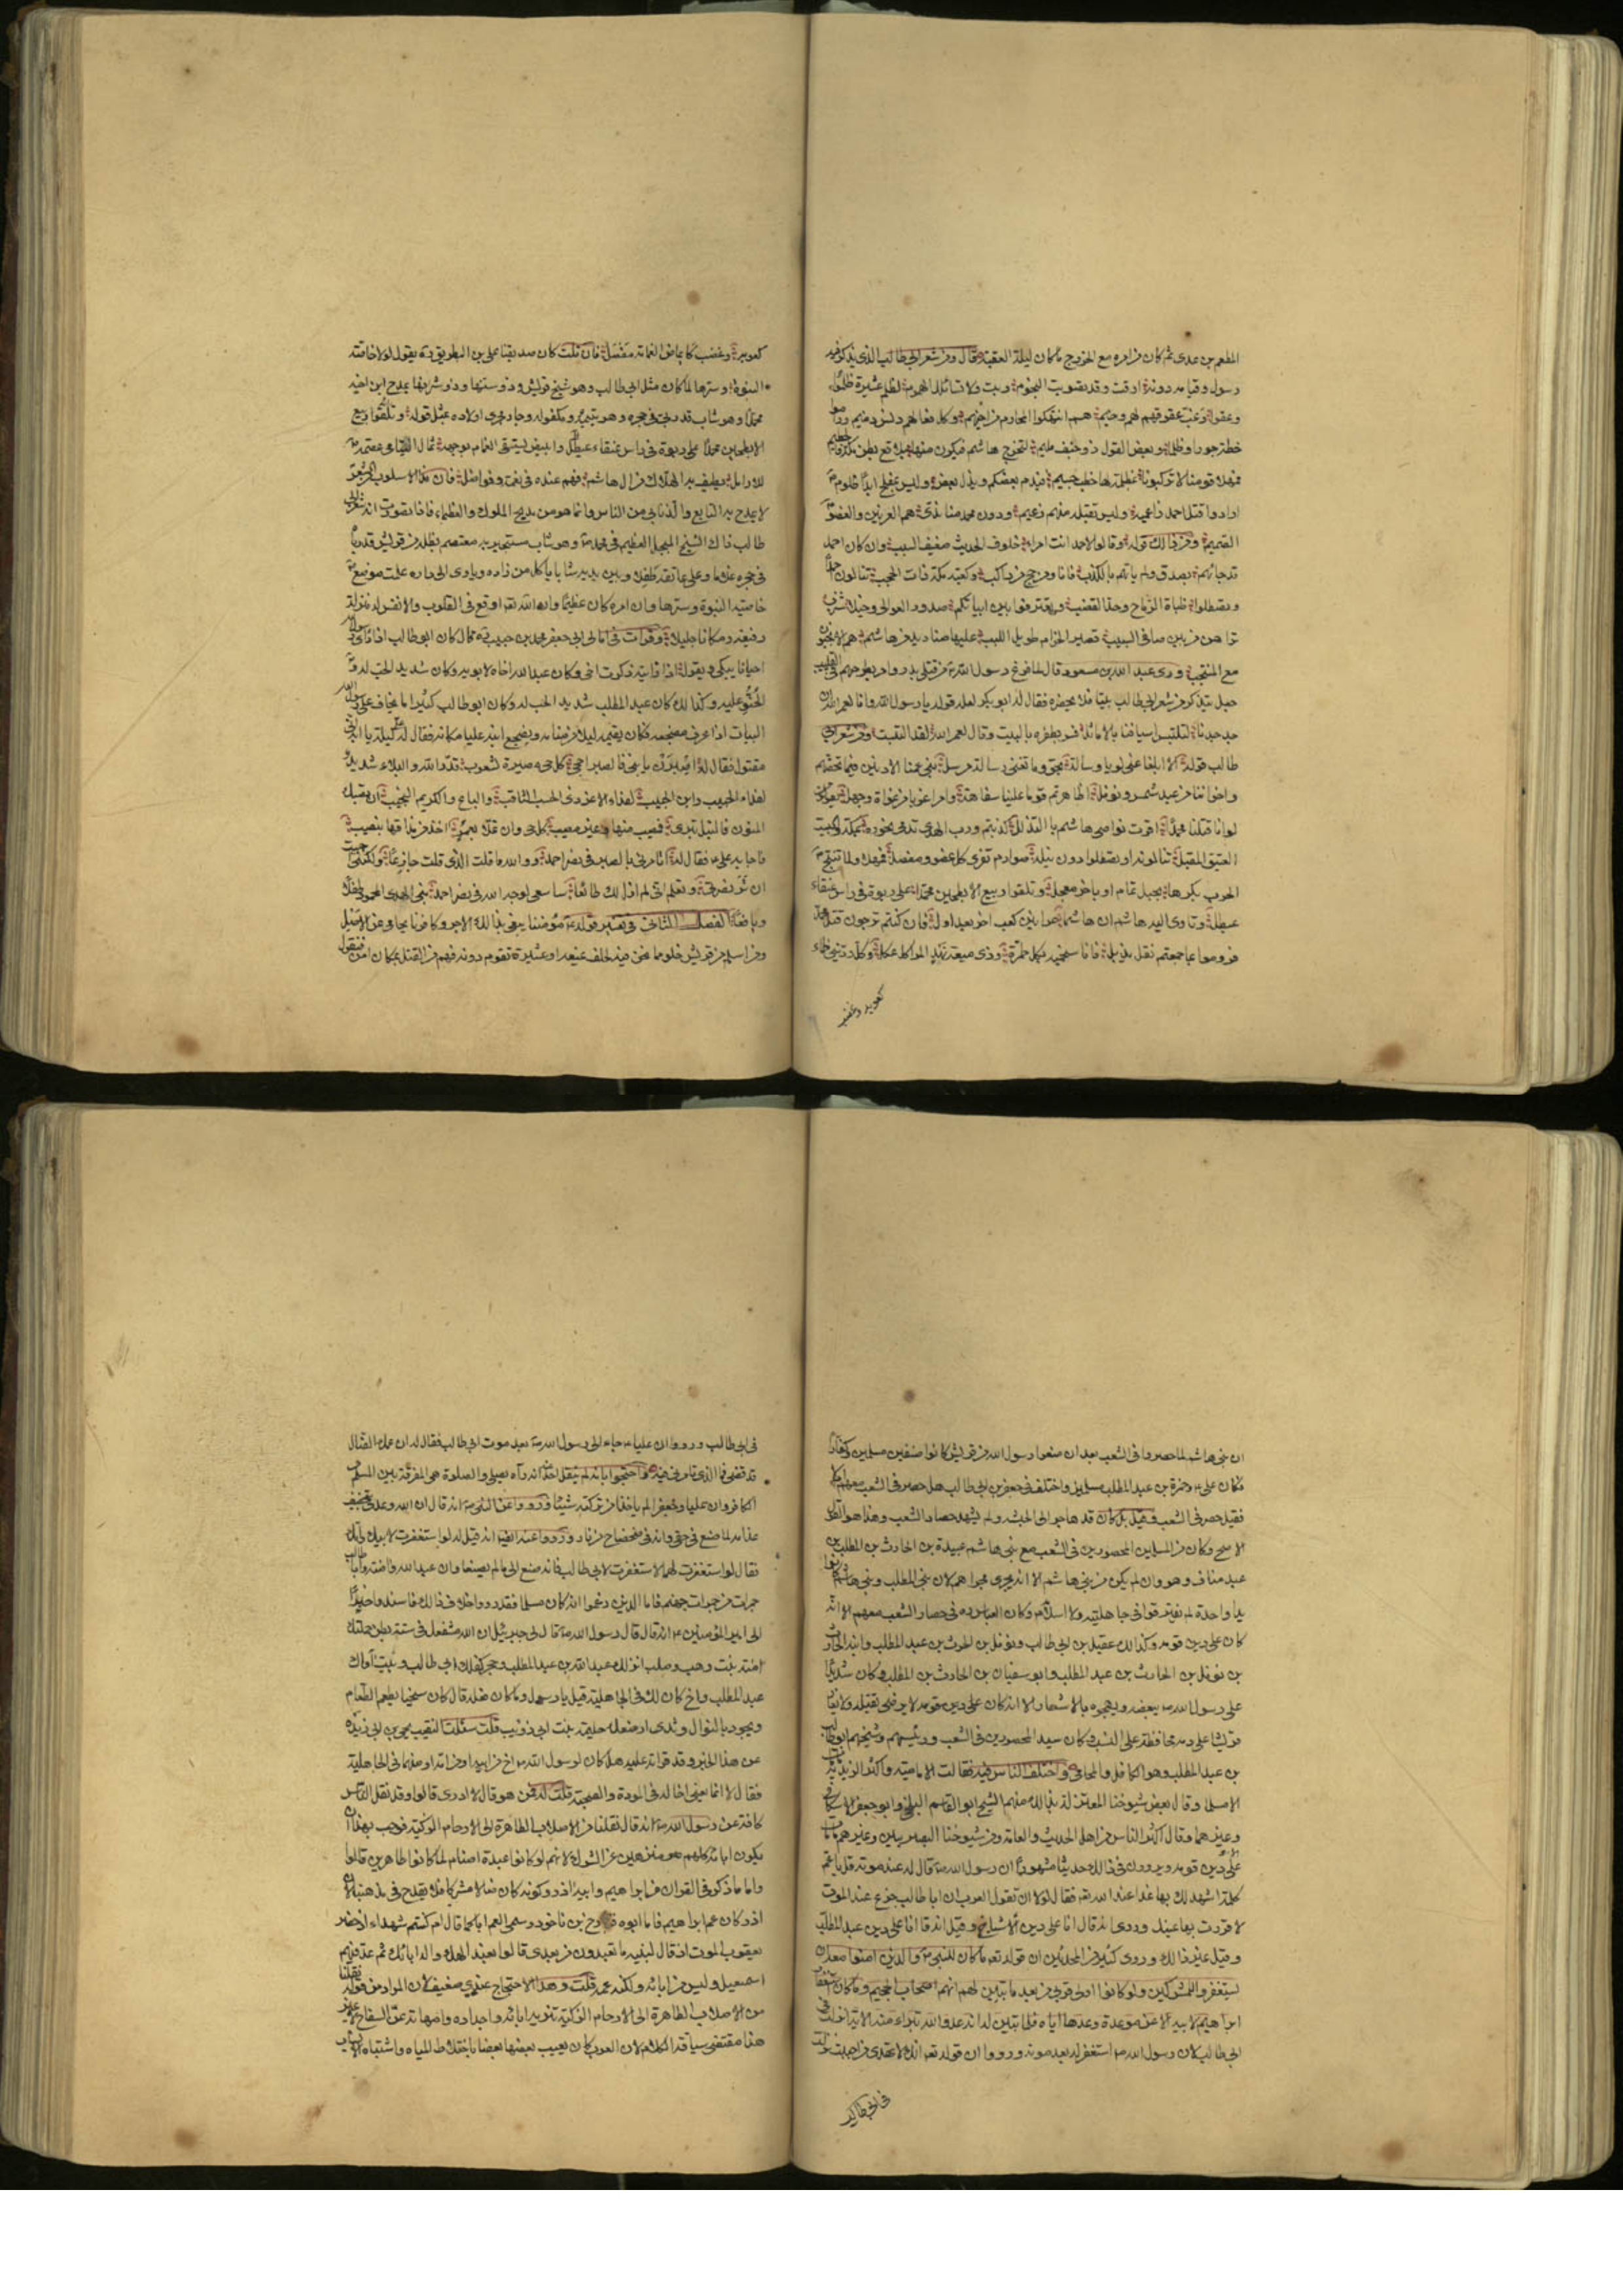 المطعم بن عدى ثم كان من امره مع الخزرج ما كان ليلة العقبة قال ومن شعر ابى طالب الذى يذكر فيه
رسول وقيامه دونه ارقت وقد تصوبت النجوم وبت ولا تسالمك الهموم لظلم عشيرة ظلموا
وعقوا وغب عقوقهم لهم وخيم هم انتهكوا المحارم من اخيهم وكل فعالهم دنس ذميم وراموا
خطة جورا وظلما وبعض القول ذو جنف مليم لتخرج هاشم فيكون منها بلاقع بطن مكة فالحطيم
فمهلا قومنا لا تركبونا بمظلمة لها خطب جسيم فيندم بعضكم ويذل بعض وليس بمفلح ابدا ظلوم
ارادوا قتل احمد زاعميه وليس بقتله منهم زعيم ودون محمد منا ندى هم العرنين والعضو
الصميم ومن ذلك قوله وقالوا لاحمد انت امرء خلوف الحديث ضعيف السبب وان كان احمد
قد جائهم بصدق ولم ياتهم بالكذب فانا ومن حج من راكب وكعبة مكة ذات الحجب تنالون احمد
او تصطلوا ظباة الرماح وحد القضب وتفترفوا بين ابياتكم صدور العوالى وخيلا شزب
تراهن من بين صافى السبيب قصير الحزام طويل اللبب عليها صناديد من هاشم هم الانجبون
مع المنتجب وروى عبد الله بن مسعود قال لما فرغ رسول الله من قتلى بدر وامر بطرحهم فى القليب
جعل يتذكر من شعر ابى طالب بيتا فلا يحضره فقال له ابو بكر لعله قوله يا رسول الله وانا لعمر الله ان
جد جدنا لتلتبس اسيافنا بالاماثل فسر بظفره بالبيت وقال لعمر الله لقد التبست ومن شعر ابى
طالب قوله الا ابلغا عنى لويا رسالة بحق وما تغنى رسالة مرسل بنى عمنا الادنين فيما نخصهم
واخواننا من عبد شمس ونوفل اظاهرتم قوما علينا سفاهة وامرا غويا من غواة وجهل يقولون
لو انا قتلنا محمدا اقرت نواصى هاشم بالتذلل كذبتم ورب الهدى تدمى نحوره بمكة والبيت
العتيق المقبل تنالونه او تصطلوا دون نيله صوارم تفرى كل عضو ومفصل فمهلا ولما تنتج
الحرب بكرها بخيل تمام او باخر معجل وتلقوا ربيع الابطحين محمدا على ربوة فى راس عنقاء
عيطل وتاوى اليه هاشم ان هاشما عرانين كعب اخر بعد اول فان كنتم ترجون قتل محمد
فروموا بما جمعتم نقل يذبل فانا سنحميه بكل طمرة وذى ميعة نهد المراكل هيكل وكل ردينى ظماء
كعوبه وعضب
كعوبه وعضب كايماض الغمامة مفصل فان قلت كان صديقنا على بن البطريق يقول لولا خاصة
النبوة وسرها لما كان مثل ابى طالب وهو شيخ قريش ورئيسها وذو شرفها يمدح ابن اخيه
محمدا وهو شاب قد ربى فى حجره وهو يتيمه ومكفوله وجار مجرى اولاده بمثل قوله وتلقوا ربيع
الابطحين محمدا على ربوة فى راس عنقاء عيطل وابيض يستسقى الغمام بوجهه ثمال اليتامى عصمة
للارامل يطيف به الهلاك من ال هاشم فهم عنده فى نعمة وفواضل فان هذا الاسلوب من الشعر
لا يمدح به التابع والذنابى من الناس وانما هو من مديح الملوك والعظماء فاذا تصورت انه شعر ابى
طالب ذاك الشيخ المبجل العظيم فى محمد وهو شاب مستجير به معتصم بظله من قريش قد رباه
فى حجره غلاما وعلى عاتقه طفلا وبين يديه شابا ياكل من زاده وياوى الى داره علمت موضع
خاصية النبوة وسرها وان امره كان عظيما وان الله تعالى اوقع فى القلوب والانفس له منزلة
رفيعة ومكانا جليلا وقرات فى امالى ابى جعفر محمد بن حبيب قال كان ابو طالب اذا راى رسول الله
احيانا يبكى ويقول اذا رايته ذكرت اخى وكان عبد الله اخاه لابويه وكان شديد الحب له
والحنو عليه وكذلك كان عبد المطلب شديد الحب له وكان ابو طالب كثيرا ما يخاف على رسول الله
البيات اذا عرف مضجعه فكان يقيمه ليلا من منامه ويضجع ابنه عليا مكانه فقال له على ليلة يا ابه انى
مقتول فقال له اصبرن يا بنى فالصبر احجى كل حى مصيره لشعوب قد بذلناك والبلاء شديد
لفداء الحبيب وابن الحبيب لفداء الاغر ذى الحسب الثاقب والباع والكريم النجيب ان تصبك
المنون فالنبل تبرى فمصيب منها وغير مصيب كل حى وان تملا بعمر اخذ من مذاقها بنصيب
فاجابه على فقال له اتامرنى بالصبر فى نصر احمد ووالله ما قلت الذى قلت جازعا ولكننى احببت
ان تر نصرتى وتعلم انى لم ازل لك طائعا ساسعى لوجه الله فى نصر احمد نبى الهدى المحمود طفلا
ويافعا الفصل الثانى فى تفسير قوله مؤمننا يبغى بذلك الاجر وكافرنا يحامى عن الاصل
ومن اسلم من قريش خلو مما نحن فيه لحلف يمنعه او عشيرة تقوم دونه فهم من القتل بمكان امن فنقول
ان بنى هاشم لما حصروا فى الشعب بعد ان منعوا رسول الله من قريش كانوا صنفين مسلمين وكفارا
فكان على وحمزة بن عبد المطلب مسلمين واختلف فى جعفر بن ابى طالب هل حصر فى الشعب معهم ام لا
فقيل حصر فى الشعب وقيل بل كان قد هاجر الى الحبشة ولم يشهد حصار الشعب وهذا هو القول
الاصح وكان من المسلمين المحصورين فى الشعب مع بنى هاشم عبيدة بن الحارث بن المطلب بن
عبد مناف وهو وان لم يكن من بنى هاشم الا انه يجرى مجراهم لان بنى المطلب وبنى هاشم كانوا
يدا واحدة لم يفترقوا فى جاهلية ولا اسلام وكان العباس فى حصار الشعب معهم الا انه
كان على دين قومه وكذلك عقيل بن ابى طالب ونوفل بن الحرث بن عبد المطلب وابنه الحارث
بن نوفل بن الحارث بن عبد المطلب وابو سفيان بن الحارث بن المطلب وكان شديدا
على رسول الله يبغضه ويهجوه بالاشعار الا انه كان على دين قومه لا يرضى بقتله ولا يقار
قريشا على دمه محافظة على النسب وكان سيد المحصورين فى الشعب ورئيسهم وشيخهم ابو طالب
بن عبد المطلب وهو الكافل والمحامى واختلف الناس فيه فقالت الامامية واكثر الزيدية
الا مسلما وقال بعض شيوخنا المعتزلة بذلك منهم الشيخ ابو القاسم البلخى وابو جعفر الاسكافى
وغيرهما وقال اكثر الناس من اهل الحديث والعامة ومن شيوخنا البصريين وغيرهم مات
على دين قومه ويروون فى ذلك حديثا مشهورا ان رسول الله قال له عند موته قل يا عم
كلمة اشهد لك بها غدا عند الله تعالى فقال لولا ان تقول العرب ان ابا طالب جزع عند الموت
لاقررت بها عينك وروى انه قال انا على دين الاشياخ وقيل انه قال انا على دين عبد المطلب
وقيل غير ذلك وروى كثير من المحدثين ان قوله تعالى ما كان للنبى والذين امنوا معه ان
يستغفروا للمشركين ولو كانوا اولى قربى من بعد ما تبين لهم انهم اصحاب الجحيم وما كان استغفار
ابراهيم لابيه الا عن موعدة وعدها اياه فلما تبين له انه عدو الله تبراء منه الاية انزلت فى
ابى طالب لان رسول الله استغفر له بعد موته ورووا ان قوله تعالى انك لا تهدى من احببت نزلت
فى ابى طالب
فى ابى طالب ورووا ان عليا جاء الى رسول الله بعد موت ابى طالب فقال له ان عمك الضال
قد قضى فما الذى تامرنى فيه واحتجوا بانه لم ينقل احد انه رآه يصلى والصلوة هى المفرقة بين المسلم
والكافر وان عليا وجعفرا لم ياخذا من تركته شيئا ورووا عن النبى انه قال ان الله وعدنى بتخفيف
عذابه لما صنع فى حقى وانه فى ضحضاح من نار ورووا عنه ايضا انه قيل له لو استغفرت لابيك وامك
فقال لو استغفرت لهما لاستغفرت لابى طالب فانه صنع الى ما لم يصنعا وان عبد الله وامنة وابا طالب
جمرات من جمرات جهنم فاما الذين زعموا انه كان مسلما فقد رووا خلاف ذلك فاسندوا خبرا
الى امير المؤمنين انه قال قال رسول الله قال لى جبرئيل ان الله مشفعك فى ستة بطن حملتك
امنة بنت وهب وصلب انزلك عبد الله بن عبد المطلب وحجر كفلك ابى طالب وبيت آواك
عبد المطلب واخ كان لك فى الجاهلية قيل يا رسول الله وما كان فعله قال كان سخيا يطعم الطعام
ويجود بالنوال وثدى ارضعك حليمة بنت ابى ذويب قلت سئلت النقيب يحيى بن ابى زيد
عن هذا الخبر وقد قراته عليه هل كان لرسول الله اخ من ابيه او من امه او منهما فى الجاهلية
فقال لا انما يعنى اخا له فى المودة والصحبة قلت له فمن هو قال لا ادرى قالوا وقد نقل الناس
كافة عن رسول الله انه قال نقلنا من الاصلاب الطاهرة الى الارحام الزكية فوجب بهذا ان
يكون اباؤه كلهم منزهين عن الشرك لانهم لو كانوا عبدة اصنام لما كانوا طاهرين قالوا
واما ما ذكر فى القران من ابراهيم وابيه اذر وكونه كان ضالا مشركا فلا يقدح فى مذهبنا لان
اذر كان عم ابراهيم فاما ابوه فتارخ بن ناخور وسمى العم ابا كما قال ام كنتم شهداء اذ حضر
يعقوب الموت اذ قال لبنيه ما تعبدون من بعدى قالوا نعبد الهك واله ابائك ثم عد فيهم
اسمعيل وليس من ابائه ولكنه عمه قلت وهذا الاحتجاج عندى ضعيف لان المراد من قوله نقلنا
من الاصلاب الطاهرة الى الارحام الزكية تنزيه ابائه واجداده وامهاته عن السفاح لا غير
هذا مقتضى سياقة الكلام لان العرب كان يعيب بعضها بعضا باختلاط المياه واشتباه الانساب